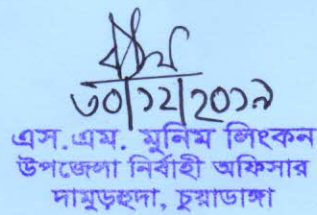 ৩০|১২|২০১৯
এস.এম. মুনিম লিংকন
উপজেলা নির্বাহী অফিসার
দামুড়হুদা, চুয়াডাঙ্গা